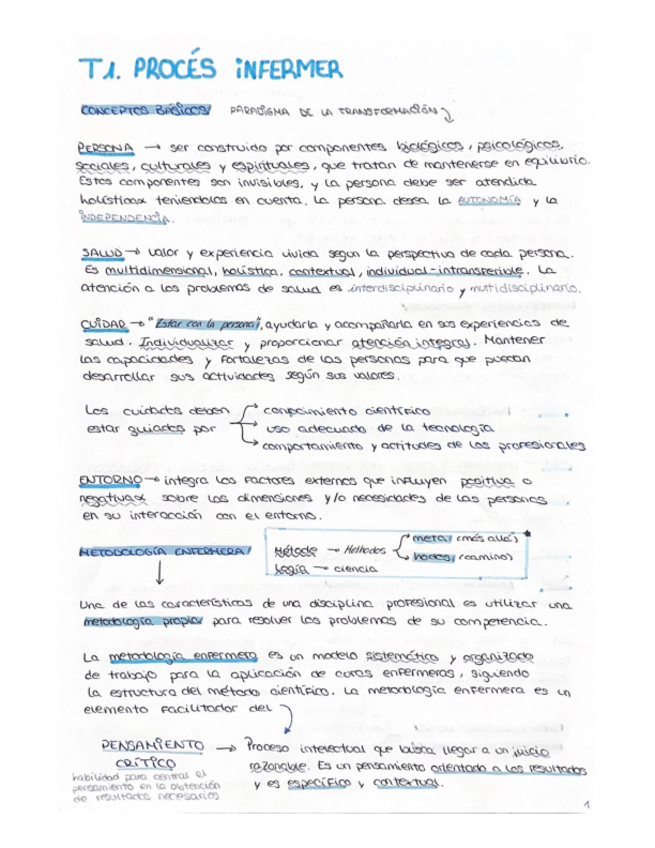 T1. PROCÉS INFERMER
CONCEPTOS BÁSICOS PARADIGMA DE LA TRANSFORMACIÓN
PERSONA → ser construido por componentes biológicos, psicológicos,
sociales, culturales y espirituales, que tratan de mantenerse en equilibrio.
Estos componentes son invisibles, y la persona debe ser atendida
holística x teniendolos en cuenta. La persona desea la AUTONOMÍA y la
INDEPENDENCIA.
SALUD → valor y experiencia vivida según la perspectiva de cada persona.
Es multidimensional, holística, contextual, individual-intransferible. La
atención a los problemas de salud es interdisciplinario y multidisciplinario.
CUIDAR → "Estar con la persona", ayudarla y acompañarla en sus experiencias de
salud. Individualizar y proporcionar atención integral. Mantener
las capacidades y fortalezas de las personas para que puedan
desarrollar sus actividades según sus valores.
Los cuidados deben → conocimiento científico
estar guiados por → uso adecuado de la tecnología
→ comportamiento y actitudes de los profesionales
ENTORNO → integra los factores externos que influyen positiva o
negativa x sobre las dimensiones y/o necesidades de las personas
en su interacción con el entorno.
METODOLOGÍA ENFERMERA
Método → Methodos meta (más allá)
hodos (camino)
Logía → ciencia
Una de las características de una disciplina profesional es utilizar una
metodología propia para resolver los problemas de su competencia.
La metodología enfermera es un modelo sistemático y organizado
de trabajo para la aplicación de curas enfermeras, siguiendo
la estructura del método científico. La metodología enfermera es un
elemento facilitador del
PENSAMIENTO → Proceso intelectual que busca llegar a un juicio
CRÍTICO razonable. Es un pensamiento orientado a los resultados
y es específico y contextual.
habilidad para centrar el
pensamiento en la obtención
de resultados necesarios
1